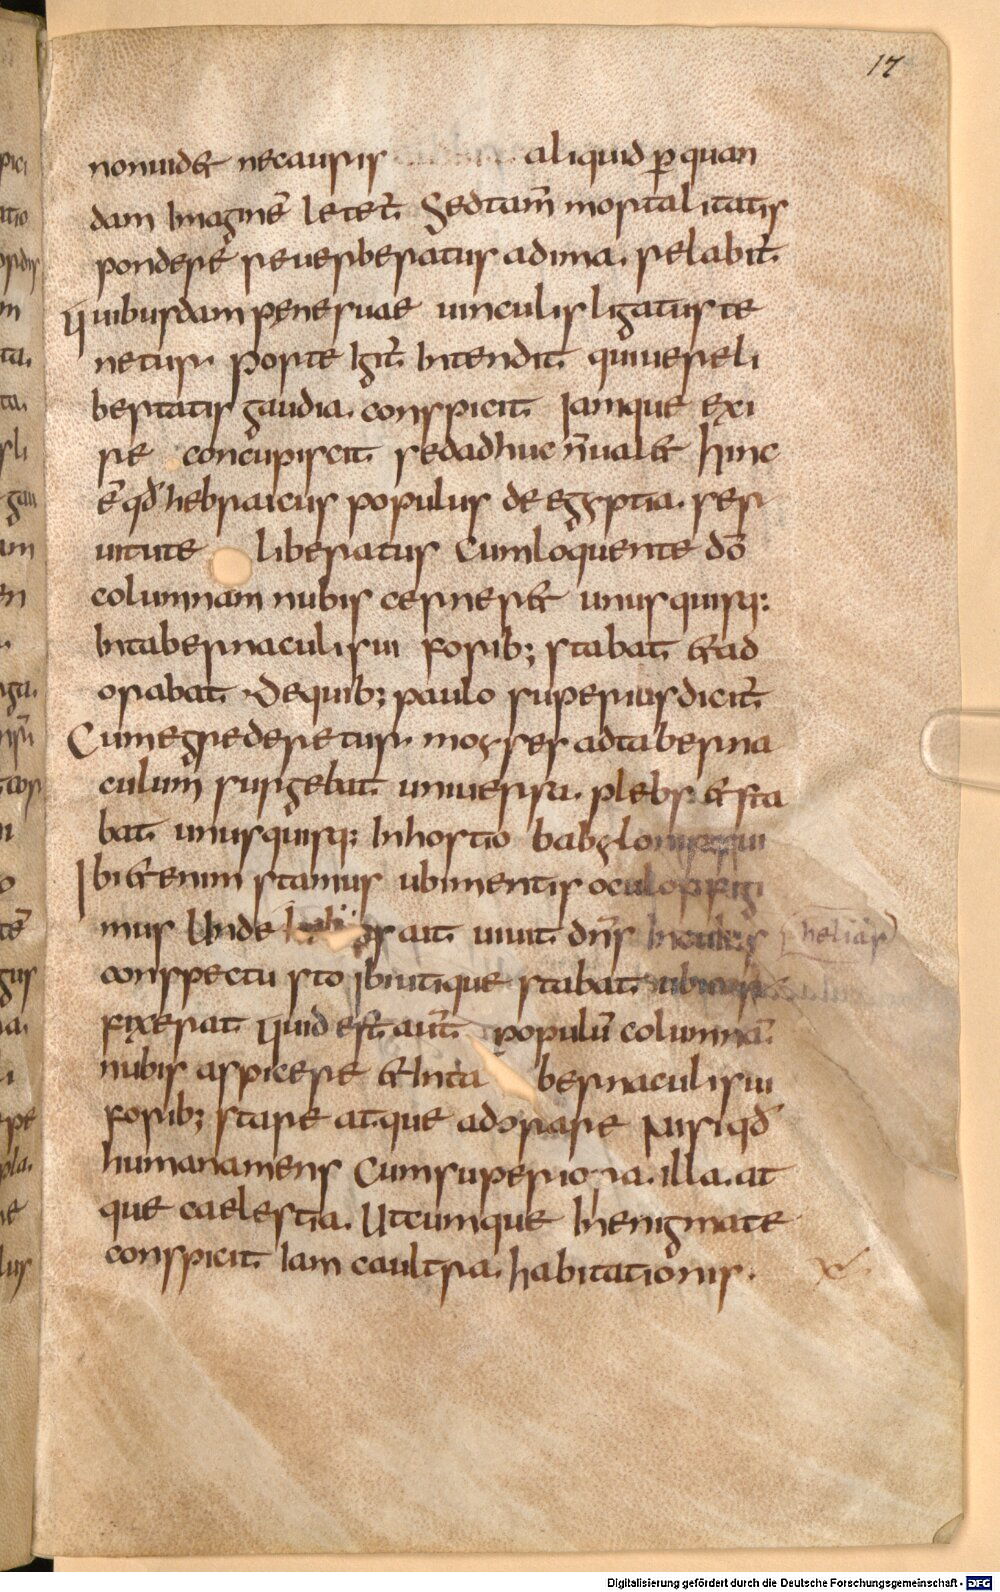 17
nonuidet necausus aliquid p̲ quan
dam Imaginē letet̄. Sedtam̄ mortalitatis
ponderē reuerberatus adima. relabit̄.
quibusdam penesuae uinculis ligatus te
netur. poste Igit̄. Intendit. quiuereli
bertatis gaudia. conspicit. Iamque exi
re concupiscit. sedadhuc n̄ualet hinc
ē qd̄ hebraicus populus de egyptia. ser
uitute liberatus Cumloquente dō
columnam nubis cerneret unusquisq;
Intabernaculisui forib; stabat. etad
orabat. Dequib; paulo superiusdicit̄.
Cumegrederetur. moyses adtaberna
culum̄ surgebat. uniuersa. plebs. etsta
bat. unusquisq; Inhostio
Ibi etenim stamus ubimentis oculosfigi
mus Unde ait. uiuit. dn̄s
conspectu sto Ibiutique stabat.
fixerat. quid est. aut̄. populū columnā.
nubis aspicere etInta bernaculisui
forib; stare atque adorare Nisiqd̄
humanamens Cumsuperiora. illa. at
que caelestia. Utcumque Inenigmate
conspicit. Iam caultra. habitationis.
helias